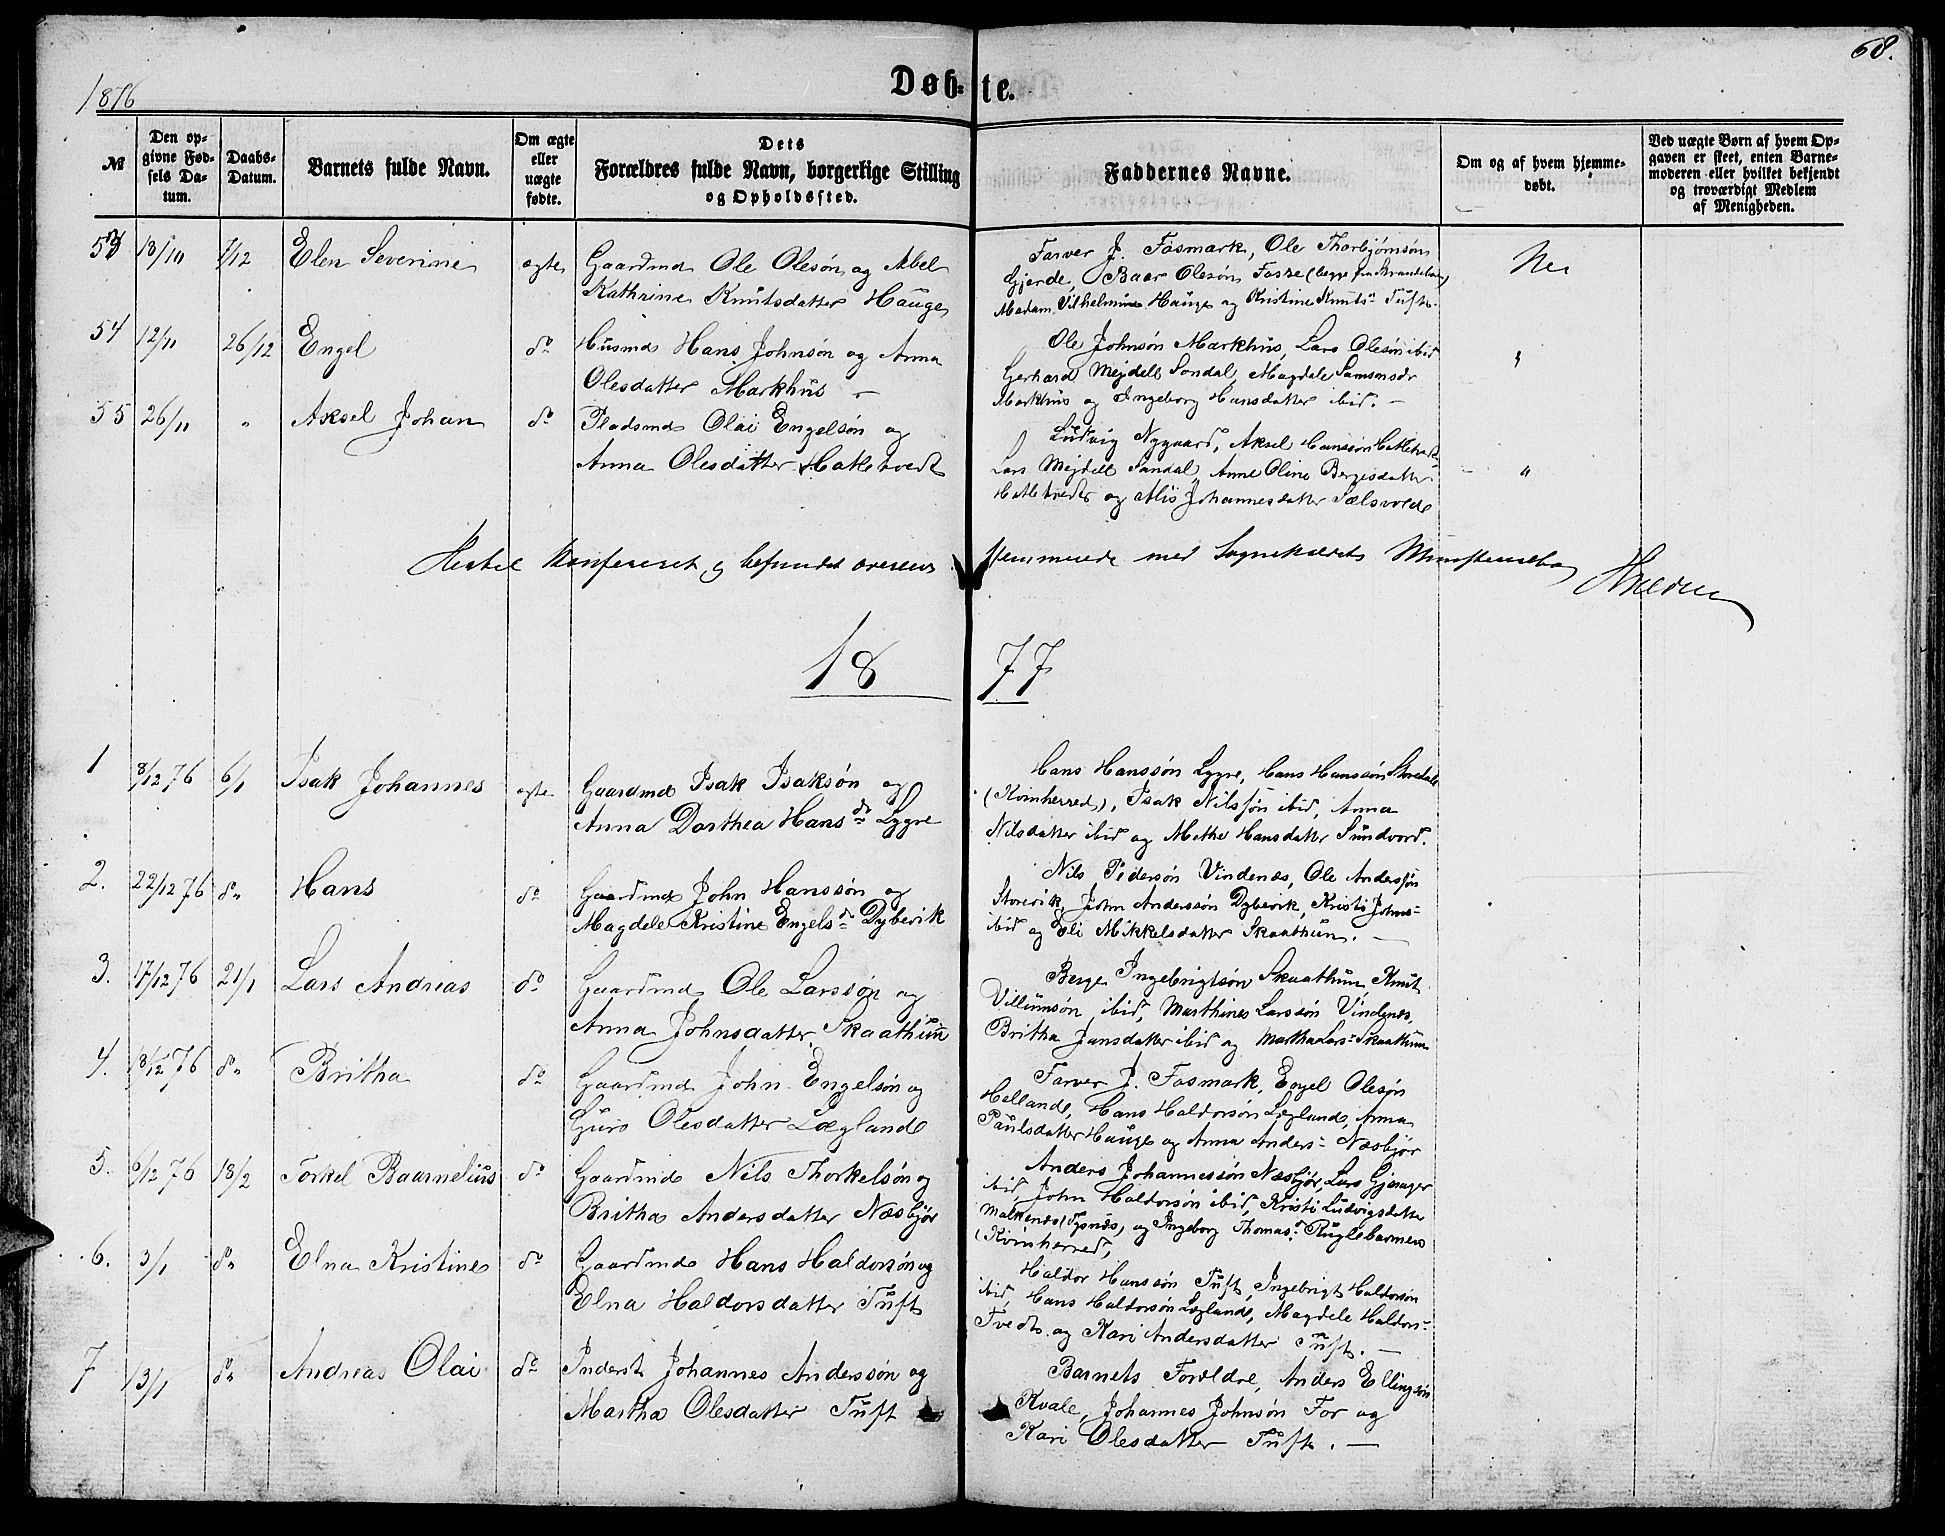 68.
1876
Døbte.
№
Den opgivne Fødsels Datum.
Daabs-Datum.
Barnets fulde Navn.
Om ægte eller uægte fødte.
Dets Forældres fulde Navn, borgerlige Stilling og Opholdssted.
Faddernes Navne.
Om og af hvem hjemmedøbt.
Ved uægte Børn af hvem Opgaven er skeet, enten Barnemoderen eller hvilket bekjendt og troværdigt Medlem af Menigheden.
53 18/10 7/12 Elen Severine ægte Gaardmd Ole Olesøn og Abel
Kathrine Knutsdatter Hauge
Farver J. Fosmark, Ole Thorbjørnsøn
Gjerde, Baar Olesøn Fosse (begge fra Strandebarm)
Madam Vilhelmine Hauge og Kristine Knuts= Tuft.
Nei
54 12/11 26/12 Engel do Husmd Hans Johnsøn og Anna
Olesdatter Markhus –
Ole Johnsøn Markhus, Lars Olesøn ibid
Gerhard Mejdell Sondal, Magdale Samsonsdr
Markhus og Ingeborg Hansdatter ibid. –
"
55 26/11 " Aksel Johan do Pladsmd Olai Engelsøn og
Anna Olesdatter Hatletvedt
Ludvig Nygaard, Aksel Hanssøn Hatletvedt
Lars Mejdell Sandal, Anne Oline Bergesdatter
Hatletvedt og Alis Johannesdatter Sælsvold
"
Hertil konfereret og befundet overens stemmende med Sognekaldets Ministerialbog
1877
1 8/12 76 6/1 Isak Johannes ægte Gaardmd Isak Isaksøn og
Anna Dorthea Hansdr Lygre
Hans Hanssøn Lygre, Hans Hanssøn Storedale
(Kvinherred), Isak Nilssøn ibid, Anna
Nilsdatter ibid og Methe Hansdatter Sundvord.
2. 22/12 76 do Hans do Gaardmd John Hanssøn og
Magdele Kristine Engelsd= Dybevik
Nils Pedersøn Vindenes, Ole Anderssøn
Storevik, John Anderssøn Dybevik, Kristi Johns=
ibid og Eli Mikkelsdatter Skaathun. –
3. 17/12 76 21/1 Lars Andreas do Gaardmd Ole Larssøn og
Anna Johnsdatter Skaathun
Berge Ingebrigtsøn Skaathun, Knut
Villumsøn ibid, Marthines Larssøn Vindenes,
Britha Jansdatter ibid og Martha Lars= Skaathun
4. 18/12 76 do Britha do Gaardmd John Engelsøn og
Guro Olesdatter Lægland
Farver J. Fosmark, Engel Olesøn
Helland, Hans Haldorsøn Lægland, Anna
Paulsdatter Hauge og Anna Anders= Næsbjør
5. 6/12 76 18/2 Torkel Baarnelius do Gaardmd Nils Thorkelsøn og
Britha Andersdatter Næsbjør
Anders Johannessøn Næsbjør, Lars Gjerager
ibid, John Haldorsøn ibid, Kristi Ludvigsdatter
Malkenes (Tysnæs) og Ingeborg Thomas=
(Kvinherred)
6. 3/1 do Elna Kristine do Gaardmd Hans Haldorsøn og
Elna Haldorsdatter Tuft
Haldor Hanssøn Tuft, Ingebrigt Haldorsøn
ibid, Hans Haldorsøn Lægland, Magdele Haldors=
Tvedt og Kari Andersdatter Tuft. –
7 13/1 do Andreas Olai do Inderst Johannes Anderssøn og
Martha Olesdatter Tuft
Barnets Forældre, Anders Ellingsøn
Kvale, Johannes Johnsøn For og
Kari Olesdatter Tuft. –